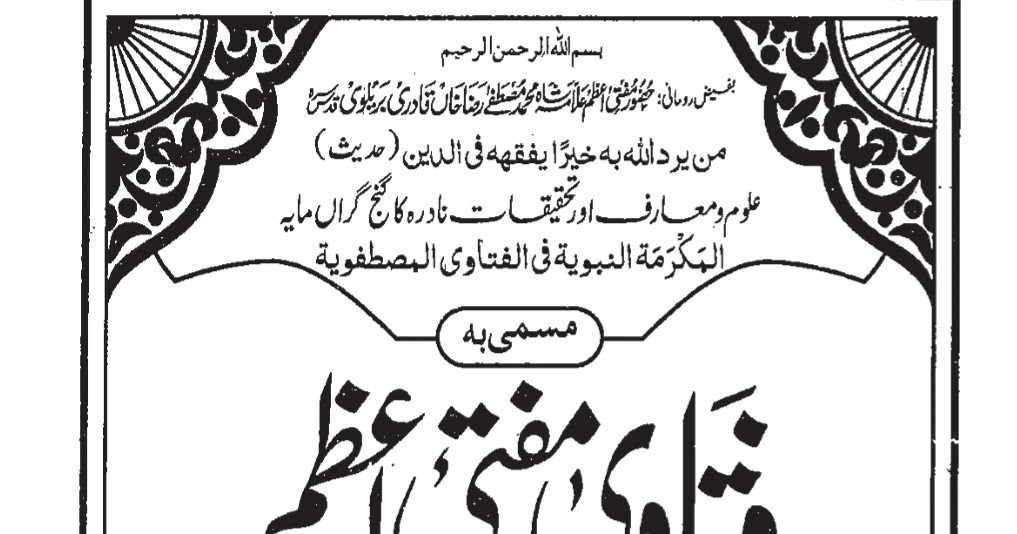 بسم الله الرحمن الرحیم
بفیض روحانی: حضور مفتی اعظم علامہ شاہ محمد مصطفےٰ رضا خاں قادری بریلوی قدس سرہ
من یرد الله به خیرًا یفقهه فی الدین (حدیث)
علوم و معارف اور تحقیقات نادرہ کا گنج گراں مایہ
المَكْرَمَة النبوية فی الفتاوی المصطفوية
مسمی بہ
فتاویٰ مفتیٔ اعظم